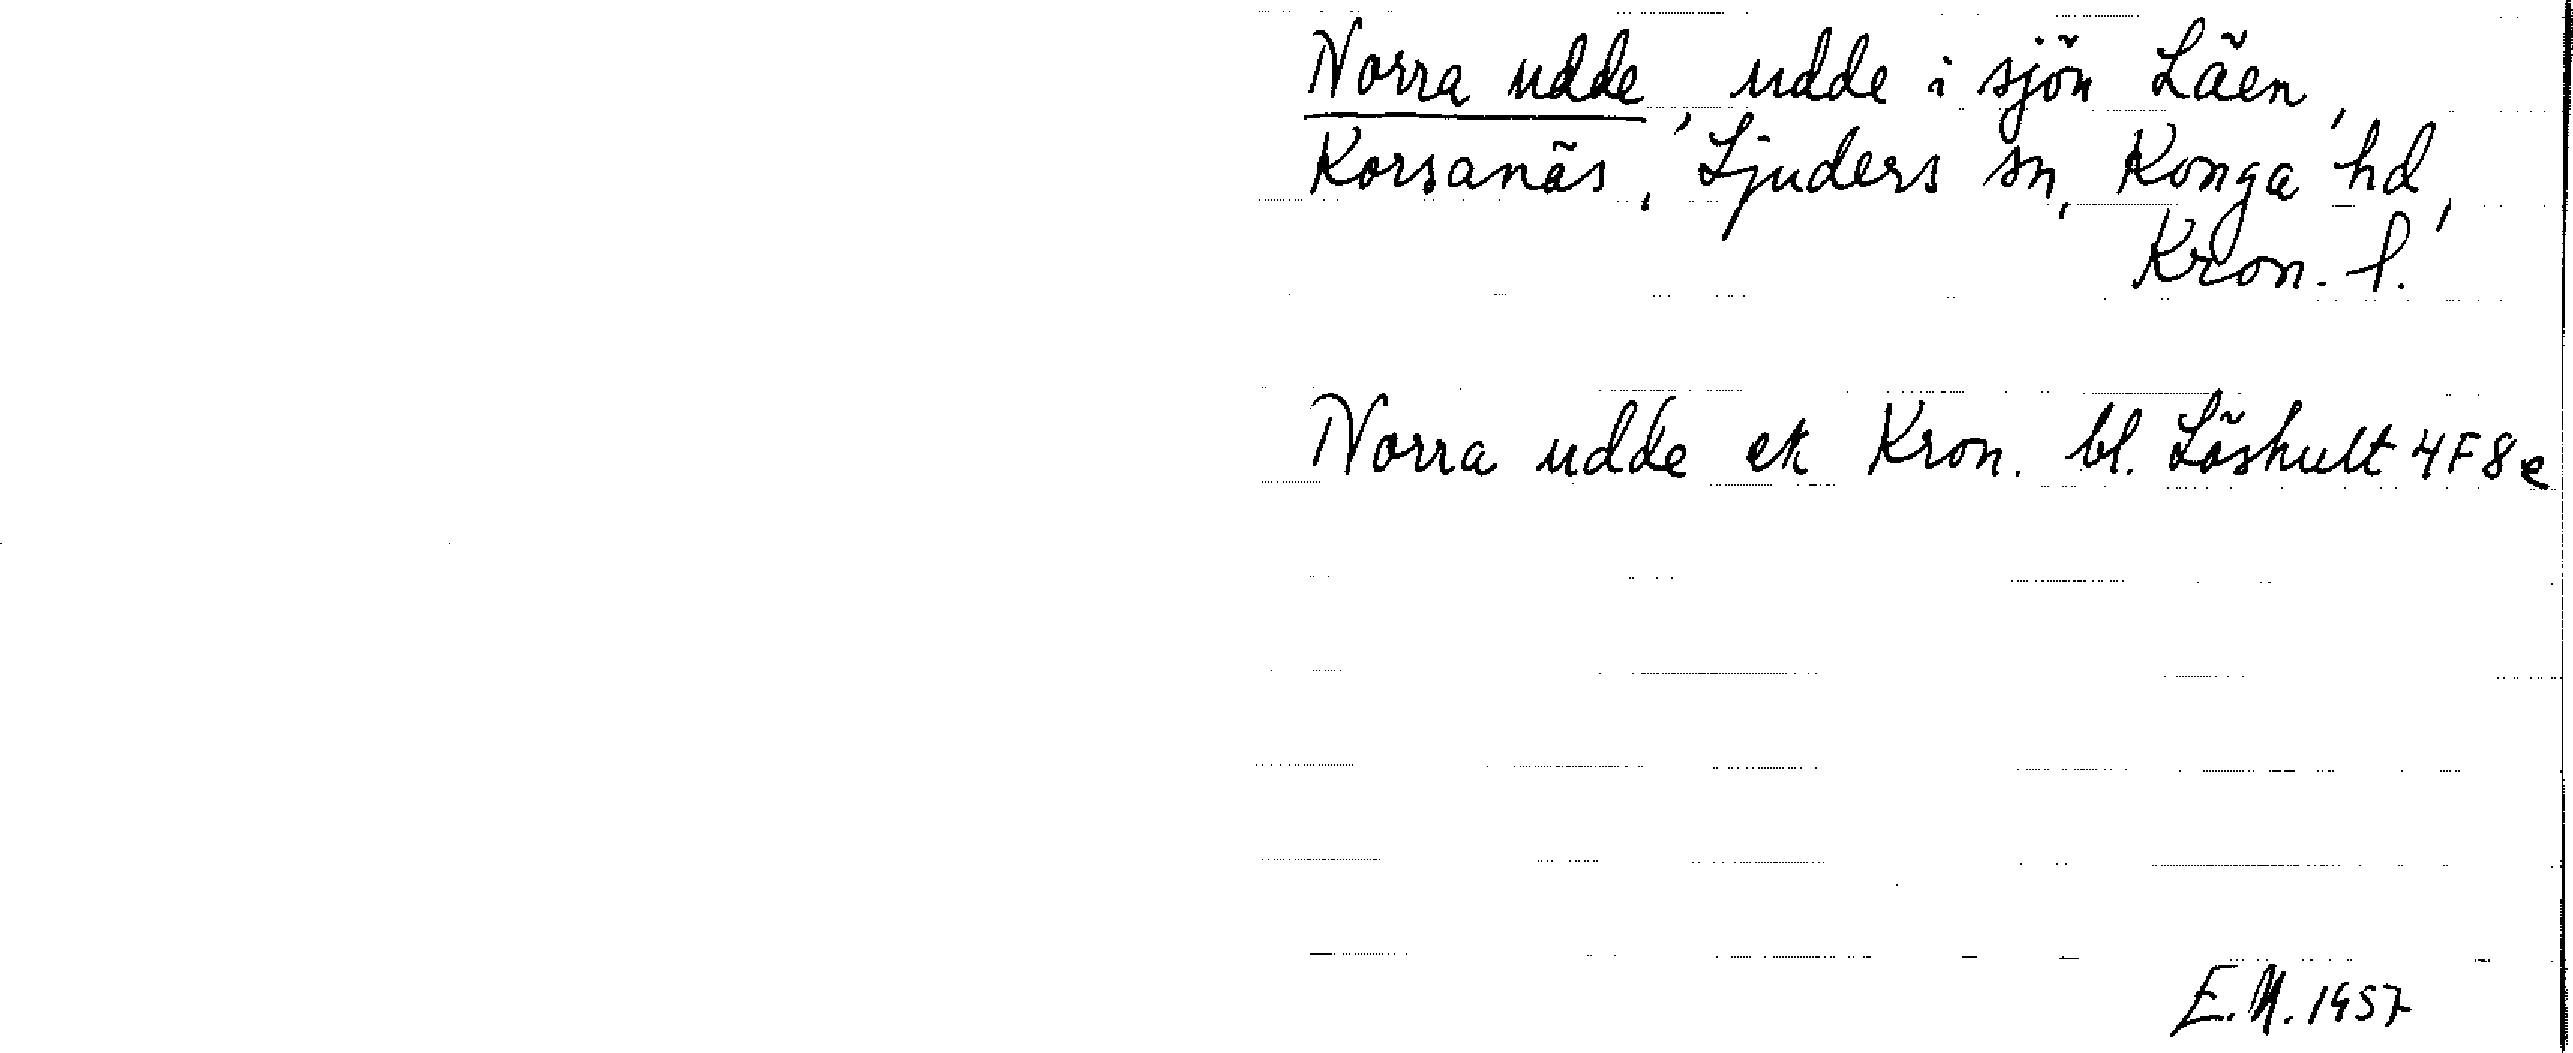 Norra udde, udde i sjön Läen,
Korsanäs, Ljuders sn, Konga hd,
Kron. l.
Norra udde ek Kron. bl. Löshult 4F8e
E.N. 1957